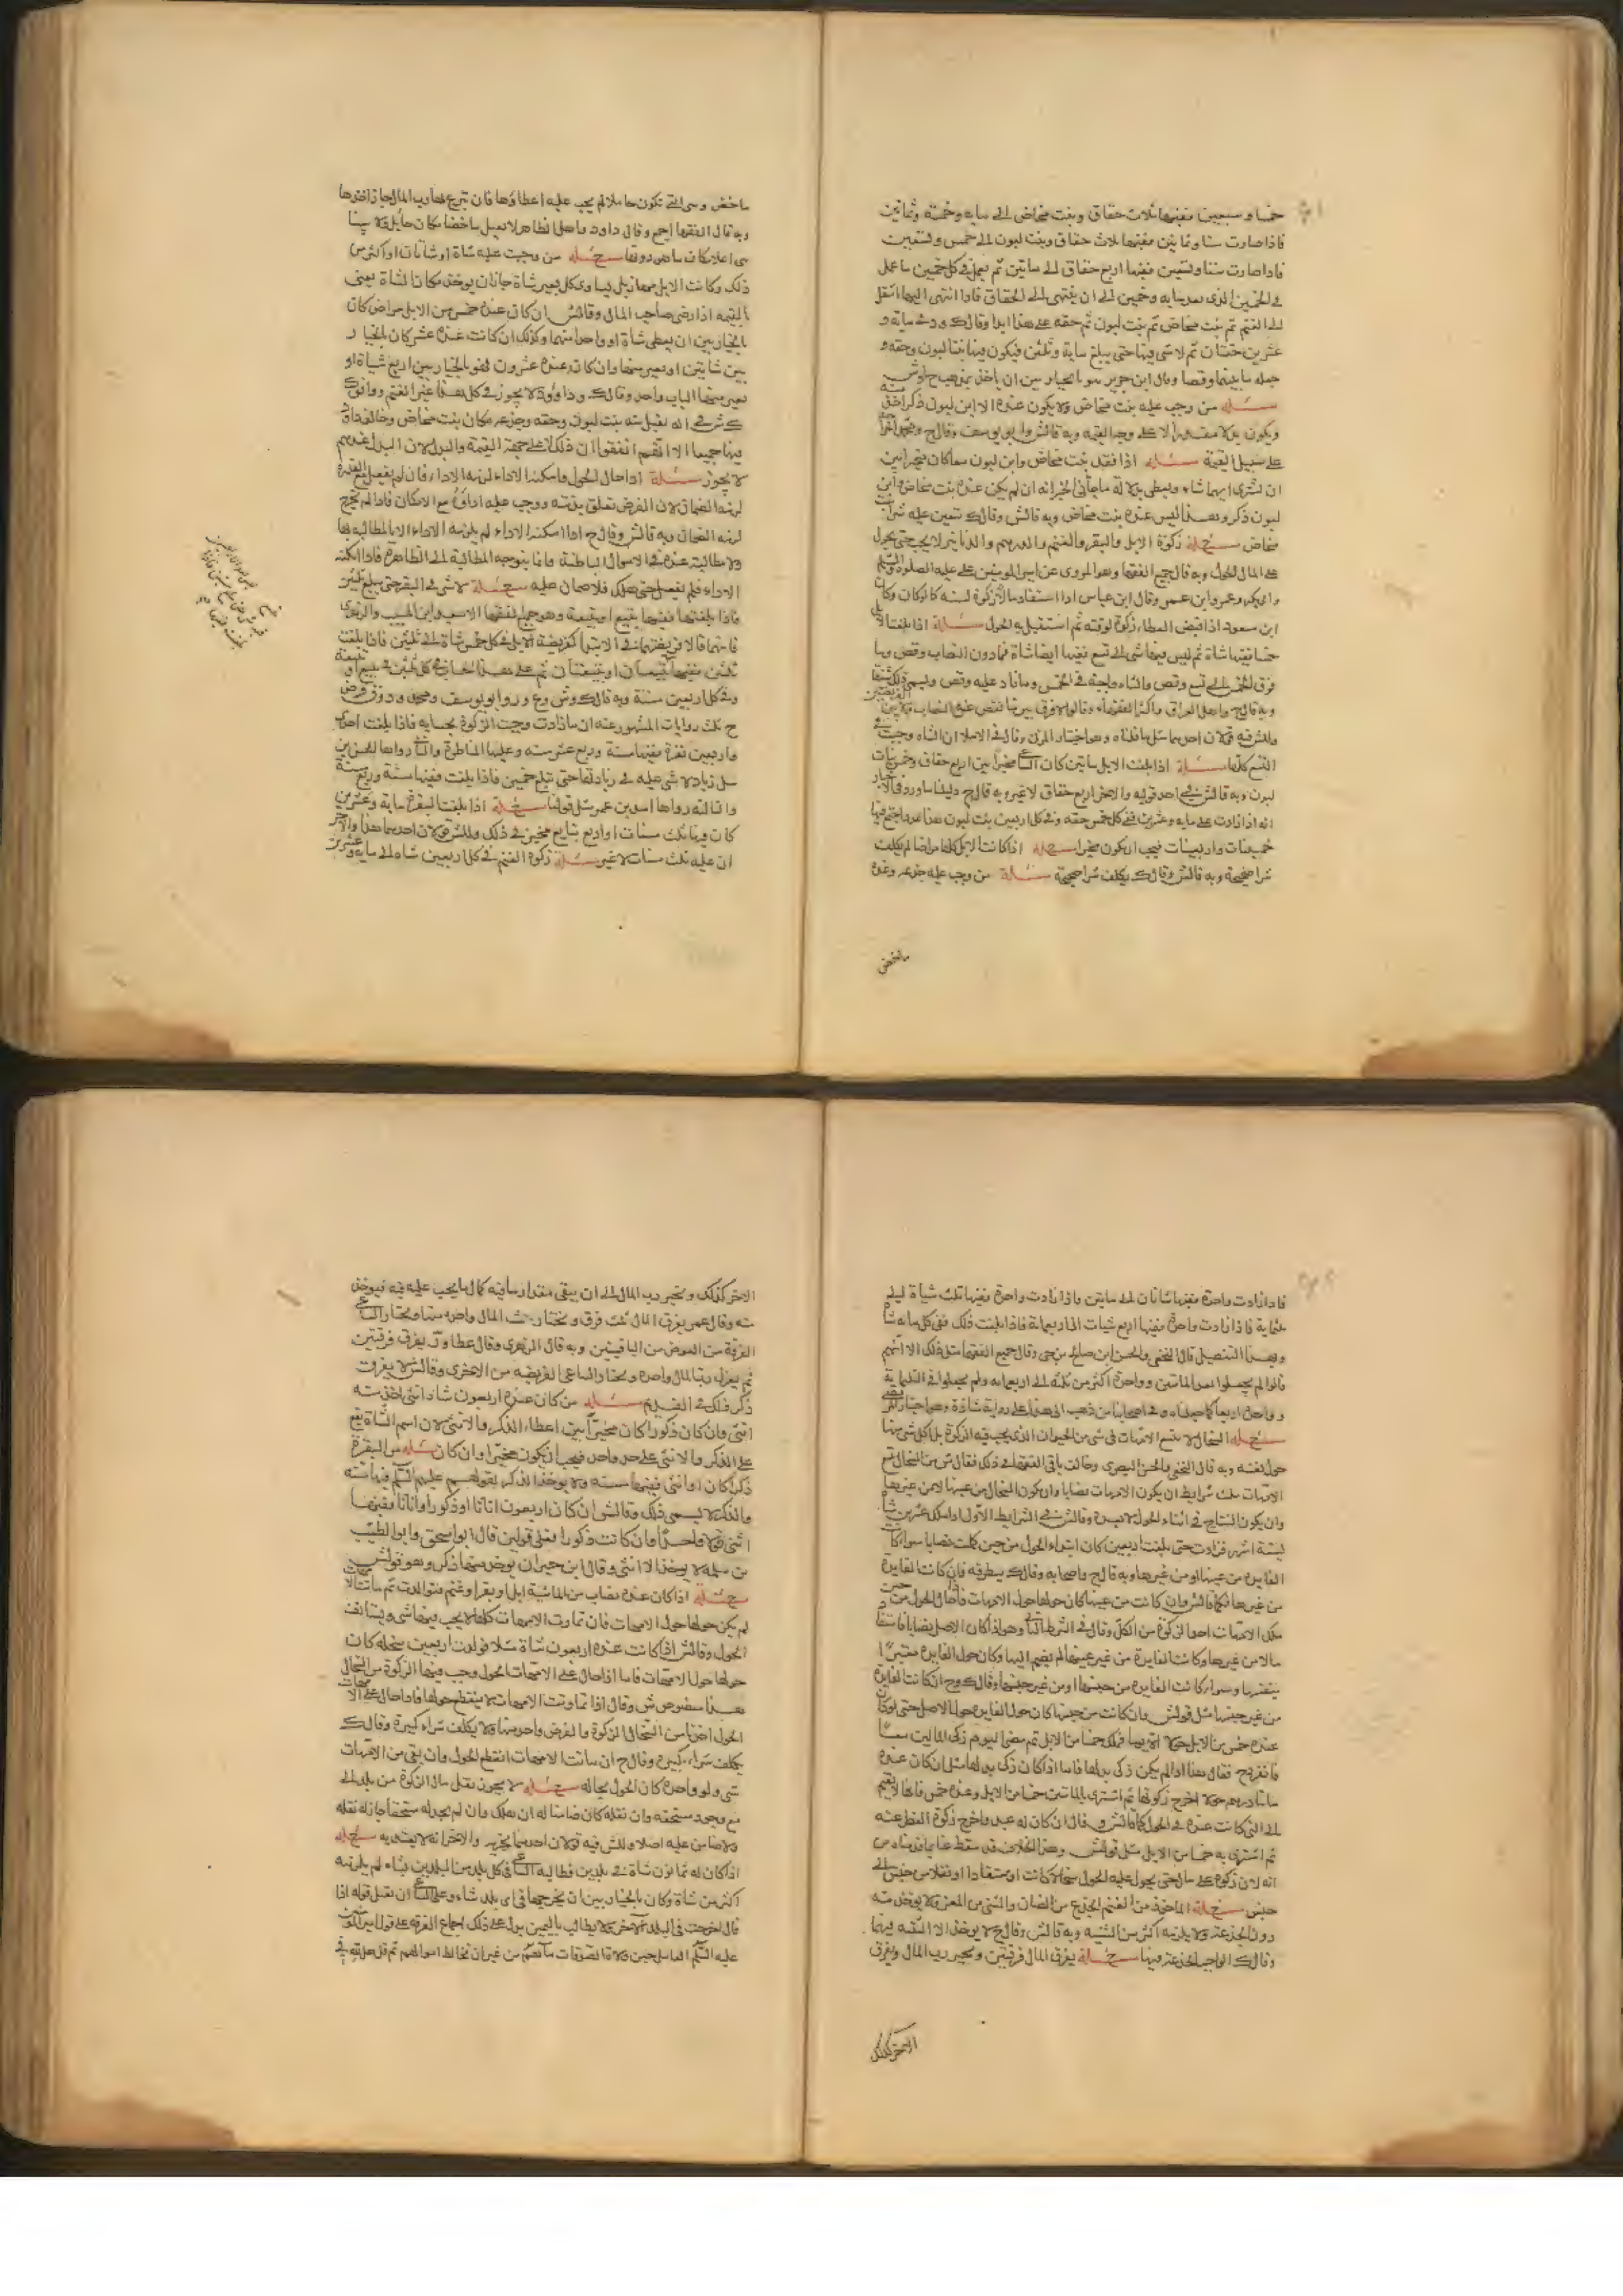 خمسا و سبعين ففيها ثلاث حقاق وبنت مخاض الى مايه وخمسة وثمانين
فاذا صارت ستا وثمانين ففيها ثلاث حقاق وبنت لبون الى خمس وتسعين
فاذا صارت ستا وتسعين ففيها اربع حقاق الى ماتين ثم يعمل في كل خمسين ما عمل
في الخمسين الذى بعد مايه وخمسين الى ان ينتهى الى الحقاق فاذا انتهى اليها انتقل
الى الغنم ثم بنت مخاض ثم بنت لبون ثم حقه على هذا ابدا وقال ك في مايه و
عشرين حقتان ثم لا شى فيها حتى يبلغ ماية وثلثين فيكون فيها بنتا لبون وحقه و
وقال ابن جرير هو بالخيار بين ان ياخذ بمذهب ح او ش
مسئله من وجب عليه بنت مخاض ولا يكون عنده الا ابن لبون ذكر اخذ
ويكون بدلا مقدرا لا على وجه القيمه وبه قال ش وابو يوسف وقال ح ومحمد
على سبيل القيمة مسئله اذا فقد بنت مخاض وابن لبون معا كان مخيرا بين
ان يشترى ايهما شاء ويعطى بدلا له ما جاء فى الخبر انه ان لم يكن عنده بنت مخاض فابن
لبون ذكر وهذا ليس عنده بنت مخاض وبه قال ش وقال ك تتعين عليه شرا بنت
مخاض مسئله زكوة الابل والبقر والغنم والدرهم والدنانير لا يجب حتى يحول
على المال الحول وبه قال جميع الفقها وهو المروى عن امير المومنين على عليه الصلوة والسلم
وابى بكر وعمر وابن عمر وقال ابن عباس اذا استفاد مالا زكاه لسنه
ابن مسعود اذا قبض العطاء زكوة لوقته ثم استقبل به الحول مسئلة اذا بلغت الابل
خمسا ففيها شاة ثم ليس فيها شى الى تسع ففيها ايضا شاة فما دون النصاب وقص وما
فوق الخمس الى تسع وقص والشاه واجبة فى الخمس وما زاد عليه وقص
وبه قال ح واهل العراق واكثر الفقهاء
وللش فيه قولان احدهما مثل ما قلناه وهو اختيار المزنى وقال فى الاملا ان الشاه وجبت في
التسع كلها مسئلة اذا بلغت الابل ماتين كان الساعى مخيرا بين اربع حقاق وخمس بنات
لبون وبه قال ش في احد قوليه والاخر اربع حقاق لا غير وبه قال ح دليلنا ما ورد فى الاخبار
انه اذا زادت على مايه وعشرين ففى كل خمسين حقه وفى كل اربعين بنت لبون هذا عدد اجتمع فيها
خمسينات واربعينات فيجب ان يكون مخيرا مسئله اذا كانت الابل كلها مراضا لم يكلف
شرا صحيحة وبه قال ش وقال ك يكلف شرا صحيحة مسئلة من وجب عليه جذعه وعنده
ماخض
ماخض وهى التى تكون حاملا لم يجب عليه اعطاؤها فان تبرع بها رب المال جاز اخذها
وبه قال الفقها اجمع وقال داود واهل الظاهر لا يقبل ماخضا مكان حايل ولا سنا
هى اعلا مكان ما هو دونها مسئله من وجبت عليه شاة او شاتان او اكثر من
ذلك وكانت الابل مهازيل يساوى كل بعير شاة جاز ان يوخذ مكان الشاة يعنى
بالقيمه اذا رضى صاحب المال وقال ش ان كان عنده خمس من الابل مراض كان
بالخيار بين ان يعطى شاة او واحدا منها وكذلك ان كانت عنده عشر كان بالخيار
بين شاتين او بعير منها وان كان عنده عشرون فهو بالخيار بين اربع شياة او
بعير منها الباب واحد وقال ك وداوود لا يجوز في كل هذا غير الغنم ووافق ك
ش في انه يقبل منه بنت لبون وحقه وجذعه مكان بنت مخاض وخالف داود
فيها جميعا الا انهم اتفقوا ان ذلك لا على جهة القيمة والبدل لان البدل عندهم
لا يجوز مسئلة اذا حال الحول وامكنه الاداء لزمه الاداء فان لم يفعل مع القدرة
لزمه الضمان لان الفرض تعلق بذمته ووجب عليه اداؤه مع الامكان فاذا لم يخرج
لزمه الضمان وبه قال ش وقال ح اذا امكنه الاداء لم يلزمه الاداء الا بالمطالبه بها
ولا مطالبة عنده فى الاموال الباطنة وانما يتوجه المطالبة الى الظاهرة فاذا امكنه
الاداء فلم يفعل حتى هلك فلا ضمان عليه مسئله لا شى فى البقر حتى يبلغ ثلثين
فاذا بلغتها ففيها تبيع او تبيعة وهو جميع الفقها الا سعيد ابن المسيب والزهرى
فانهما قالا فريضتها في الابتدا كفريضة الابل فى كل خمس شاة الى ثلثين فاذا بلغت
ثلثين ففيها تبيعان او تبيعتان ثم على هذا الحساب في كل ثلثين تبيع او تبيعة
وفى كل اربعين سنة وبه قال ك وش وع ور وابو يوسف ومحمد
ح ثلث روايات المشهور عنه ان ما زادت وجبت الزكوة بحسابه فاذا بلغت احدى
واربعين بقرة ففيها مسنة وربع عشر مسنه وعليها المناظرة والثانيه رواها الحسن بن
زياد لا شى عليه فى زيادتها حتى تبلغ خمسين فاذا بلغت ففيها مسنة وربع مسنة
والثالثه رواها اسد بن عمرو مثل قولنا مسئله اذا بلغت البقر مايه وعشرين
كان فيها ثلث مسنات او اربع تبايع مخير فى ذلك وللش قولان احدهما هذا والاخر
ان عليه ثلث مسنات لا غير مسئله زكوة الغنم فى كل اربعين شاه الى مايه وعشرين
فاذا زادت واحدة ففيها شاتان الى ماتين فاذا زادت واحدة ففيها ثلث شياة الى
ثلثماية فاذا زادت واحدة ففيها اربع شياة الى اربعماية فاذا بلغت ذلك ففى كل مايه شاة
وبهذا التفصيل قال النخعى والحسن ابن صالح بن حى وقال جميع الفقها مثل ذلك الا انهم
قالوا لم يجعلوا بعد الماتين وواحدة اكثر من ثلثه الى اربعمايه ولم يجعلوا فى الثلثماية
وواحدة اربعا كما جعلناه وفى اصحابنا من ذهب الى هذا على رواية شاذة وهو اختيار المرتضى
مسئله السخال لا تتبع الامهات فى شى من الحيوان الذى يجب فيه الزكوة بل لكل شى منها
حول نفسه وبه قال النخعى والحسن البصرى وخالف باقى الفقها في ذلك فقال ش من السخال تتبع
الامهات بثلث شرايط ان يكون الامهات نصابا وان يكون السخال من عينها لا من غيرها
وان يكون النتاج فى اثناء الحول لا بعده وقال ش في الشرايط الاول اذا ملك عشرين شاة
لستة اشهر فزادت حتى بلغت اربعين كان ابتداء الحول من حين كملت نصابا سواء كانت
الفايدة من عينها او من غيرها وبه قال ح واصحابه وقال ك ينظر فيه فان كانت الفايدة
من غيرها فكما قال ش وان كانت من عينها كان حولها حول الامهات فاذا حال الحول من حين
ملك الامهات اخذ الزكوة من الكل وقال فى الشرط الثانى وهو اذا كان الاصل نصابا فاستفاد
مالا من غيرها وكانت الفايدة من غير عينها لم يضم اليها وكان حول الفايدة معتبرا
بنفسها وسواء كانت الفايدة من جنسها او من غير جنسها وقال ك وح ان كانت الفايدة
من غير جنسها مثل قول ش وان كانت من جنسها كان حول الفايده حول الاصل حتى لو كان
عنده خمس من الابل حولا الا يوما فملك خمسا من الابل ثم مضى اليوم زكى المالين معا
فانفرد ح فقال هذا اذا لم يكن زكى بدلها فاما اذا كان زكى بدلها مثل ان كان عنده
ماتا درهم حولا اخرج زكوتها ثم اشترى بالماتين خمسا من الابل وعنده خمس فانها لا يضم
الى التى كانت عنده فى الحول كما قال ش و قال ان كان له عبد واخرج زكوة الفطر عنه
ثم اشترى به خمسا من الابل مثل قول ش وهذا الخلاف قد سقط عنا بما قدمناه من
انه لا زكوة على مال حتى يحول عليه الحول سخالا كانت او مستفادا او نقلا من جنس الى
جنس مسئلة الماخوذ من الغنم الجذع من الضان والثنى من المعز ولا يوخذ منه
دون الجذعة ولا يلزمه اكثر من الثنيه وبه قال ش وقال ح لا يوخذ الا الثنيه فيهما
وقال ك الواجب الجذعة فيهما مسئله يفرق المال فرقتين ويخير رب المال ويفرق
الاخر كذلك
الاخر كذلك ويخير رب المال الى ان يبقى مقدار ما فيه كمال ما يجب عليه فيه فيوخذ
منه وقال عمر يفرق المال ثلث فرق ويختار رب المال واحده منها ويختار الساعى
الفريضة من العوض من الباقيتين وبه قال الزهرى وقال عطا ور يفرق فرقتين
ثم يعزل رب المال واحدة ويختار الساعى الفريضه من الاخرى وقال ش لا يفرق
ذكر ذلك في القديم مسئله من كان عنده اربعون شاة انثى اخذ منه
انثى وان كان ذكورا كان مخيرا بين اعطاء الذكر والانثى لان اسم الشاة يقع
على الذكر والانثى على حد واحد فيجب ان يكون مخيرا وان كان من البقرة
ذكرا كان او انثى ففيها مسنه ولا يوخذ الذكر لقولهم عليهم السلم فيها مسنه
والذكر لا يسمى ذلك وقال ش ان كان اربعون اناثا او ذكورا واناثا ففيها
انثى قولا واحدا وان كانت ذكورا فعلى قولين قال ابو اسحق وابو الطيب
بن سلمه لا يوخذ الا انثى وقال ابن خيران يوخذ منها ذكر وهو قول ش
مسئله اذا كان عنده نصاب من الماشية ابل او بقر او غنم فتوالدت ثم ماتت الامهات
لم يكن حولها حول الامهات فان تماوت الامهات كلها لا يجب فيها شى ويستانف
الحول وقال ش اذا كانت عنده اربعون شاة مثلا فولدت اربعين سخله كان
حولها حول الامهات فاما اذا حال على الامهات الحول وجب فيها الزكوة من السخال
هذا منصوص ش وقال اذا تماوتت الامهات لا ينقطع حولها فاذا حال على الامهات
الحول اخذنا من السخال الزكوة والفرض واحد منها ولا يكلف شراء كبيرة وقال ك
يكلف شراء كبيره وقال ح ان ماتت الامهات انقطع الحول وان بقى من الامهات
شى ولو واحدة كان الحول بحاله مسئله لا يجوز نقل مال الزكوة من بلد الى
مع وجود مستحقه وان نقله كان ضامنا له ان هلك وان لم يجد له مستحقا جاز له نقله
ولا ضامن عليه اصلا وللش فيه قولان احدهما يجزيه والاخر انه لا يعتد به مسئله
اذا كان له ثمانون شاة في بلدين فطالبه الساعى فى كل بلد من البلدين بشاه لم يلزمه
اكثر من شاة وكان بالخيار بين ان يخرجها فى اى بلد شاء وعلى الساعى ان يقبل قوله اذا
قال اخرجت فى البلد الاخر ولا يطالب باليمين يدل على ذلك اجماع الفرقه على قول امير المومنين
عليه السلم العامل حين ولاه الصدقات من غير ان تخالط اموالهم ثم قل هل لله فى